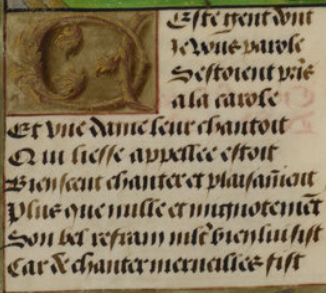 Ceste gent dont
Je vous parole
Sestoient pris
a la carole
Et une dame leur chantoit
Qui liesse appellee estoit
Bien scent chanter et plaisãment
Plus que nulle et mignotemẽt
Son bel refrain mlt̃ bien lui sist
Car de chanter merueilles fist